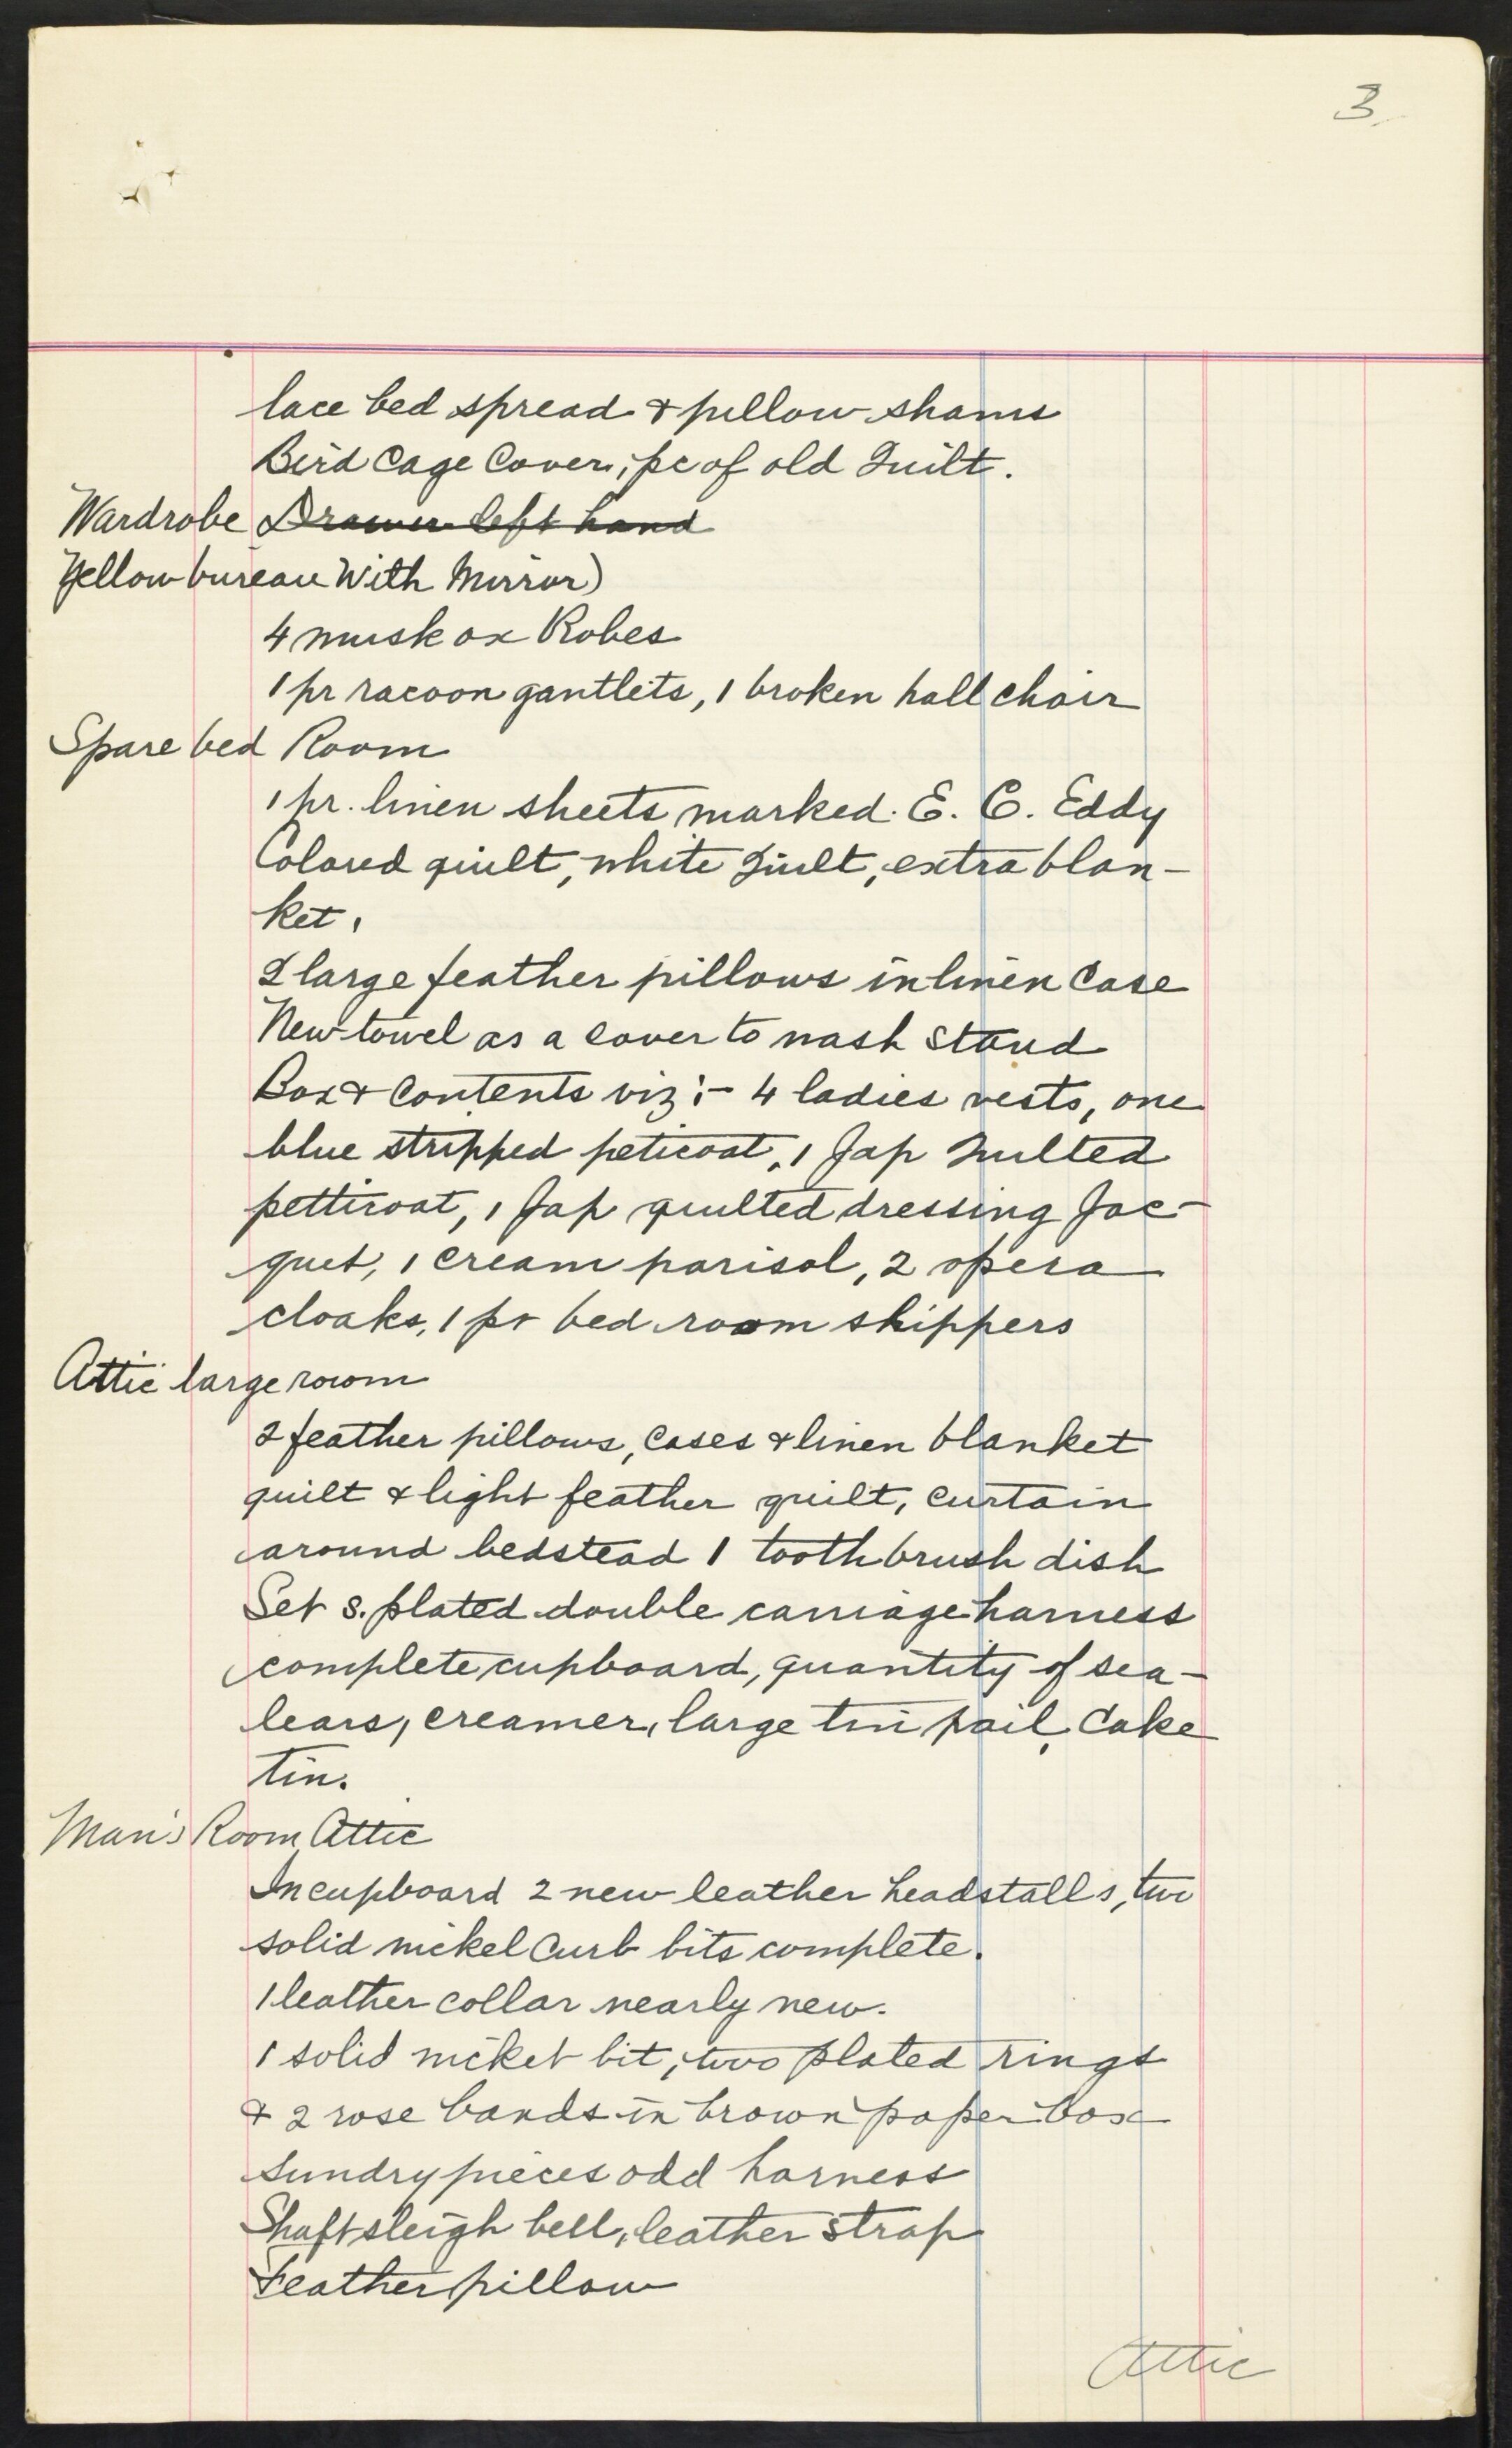 3
lace bed spread & pillow shams
Bird Cage Cover, pc of old Quilt.
Wardrobe Drawer left hand
Yellow bureau With Mirror)
4 musk ox Robes
1 pr racoon gantlets, 1 broken hall chair
Spare bed Room
1 pr. linen sheets marked. E. C. Eddy
Colored quilt, white Quilt, extra blan-
ket.
2 large feather pillows in linen Case
New towel as a cover to wash stand
Box & Contents viz:- 4 ladies vests, one
blue stripped peticoat, 1 Jap Quilted
petticoat, 1 Jap quilted dressing Jac-
quet, 1 cream parisol, 2 opera
cloaks, 1 pr bed room slippers
Attic large room
2 feather pillows, Cases & linen blanket
quilt & light feather quilt, curtain
around bedstead 1 tooth brush dish
Set s. plated double carriage harness
complete cupboard, quantity of sea-
lears, creamer, large tin pail, Cake
tin.
Man's Room Attic
In cupboard 2 new leather headstalls, two
solid nickel Curb bits complete.
1 leather collar nearly new.
1 solid nickel bit, two plated rings
& 2 rose bands in brown paper box
Sundry pieces odd harness
Shaft sleigh bell, leather strap
Feather pillow
Attic